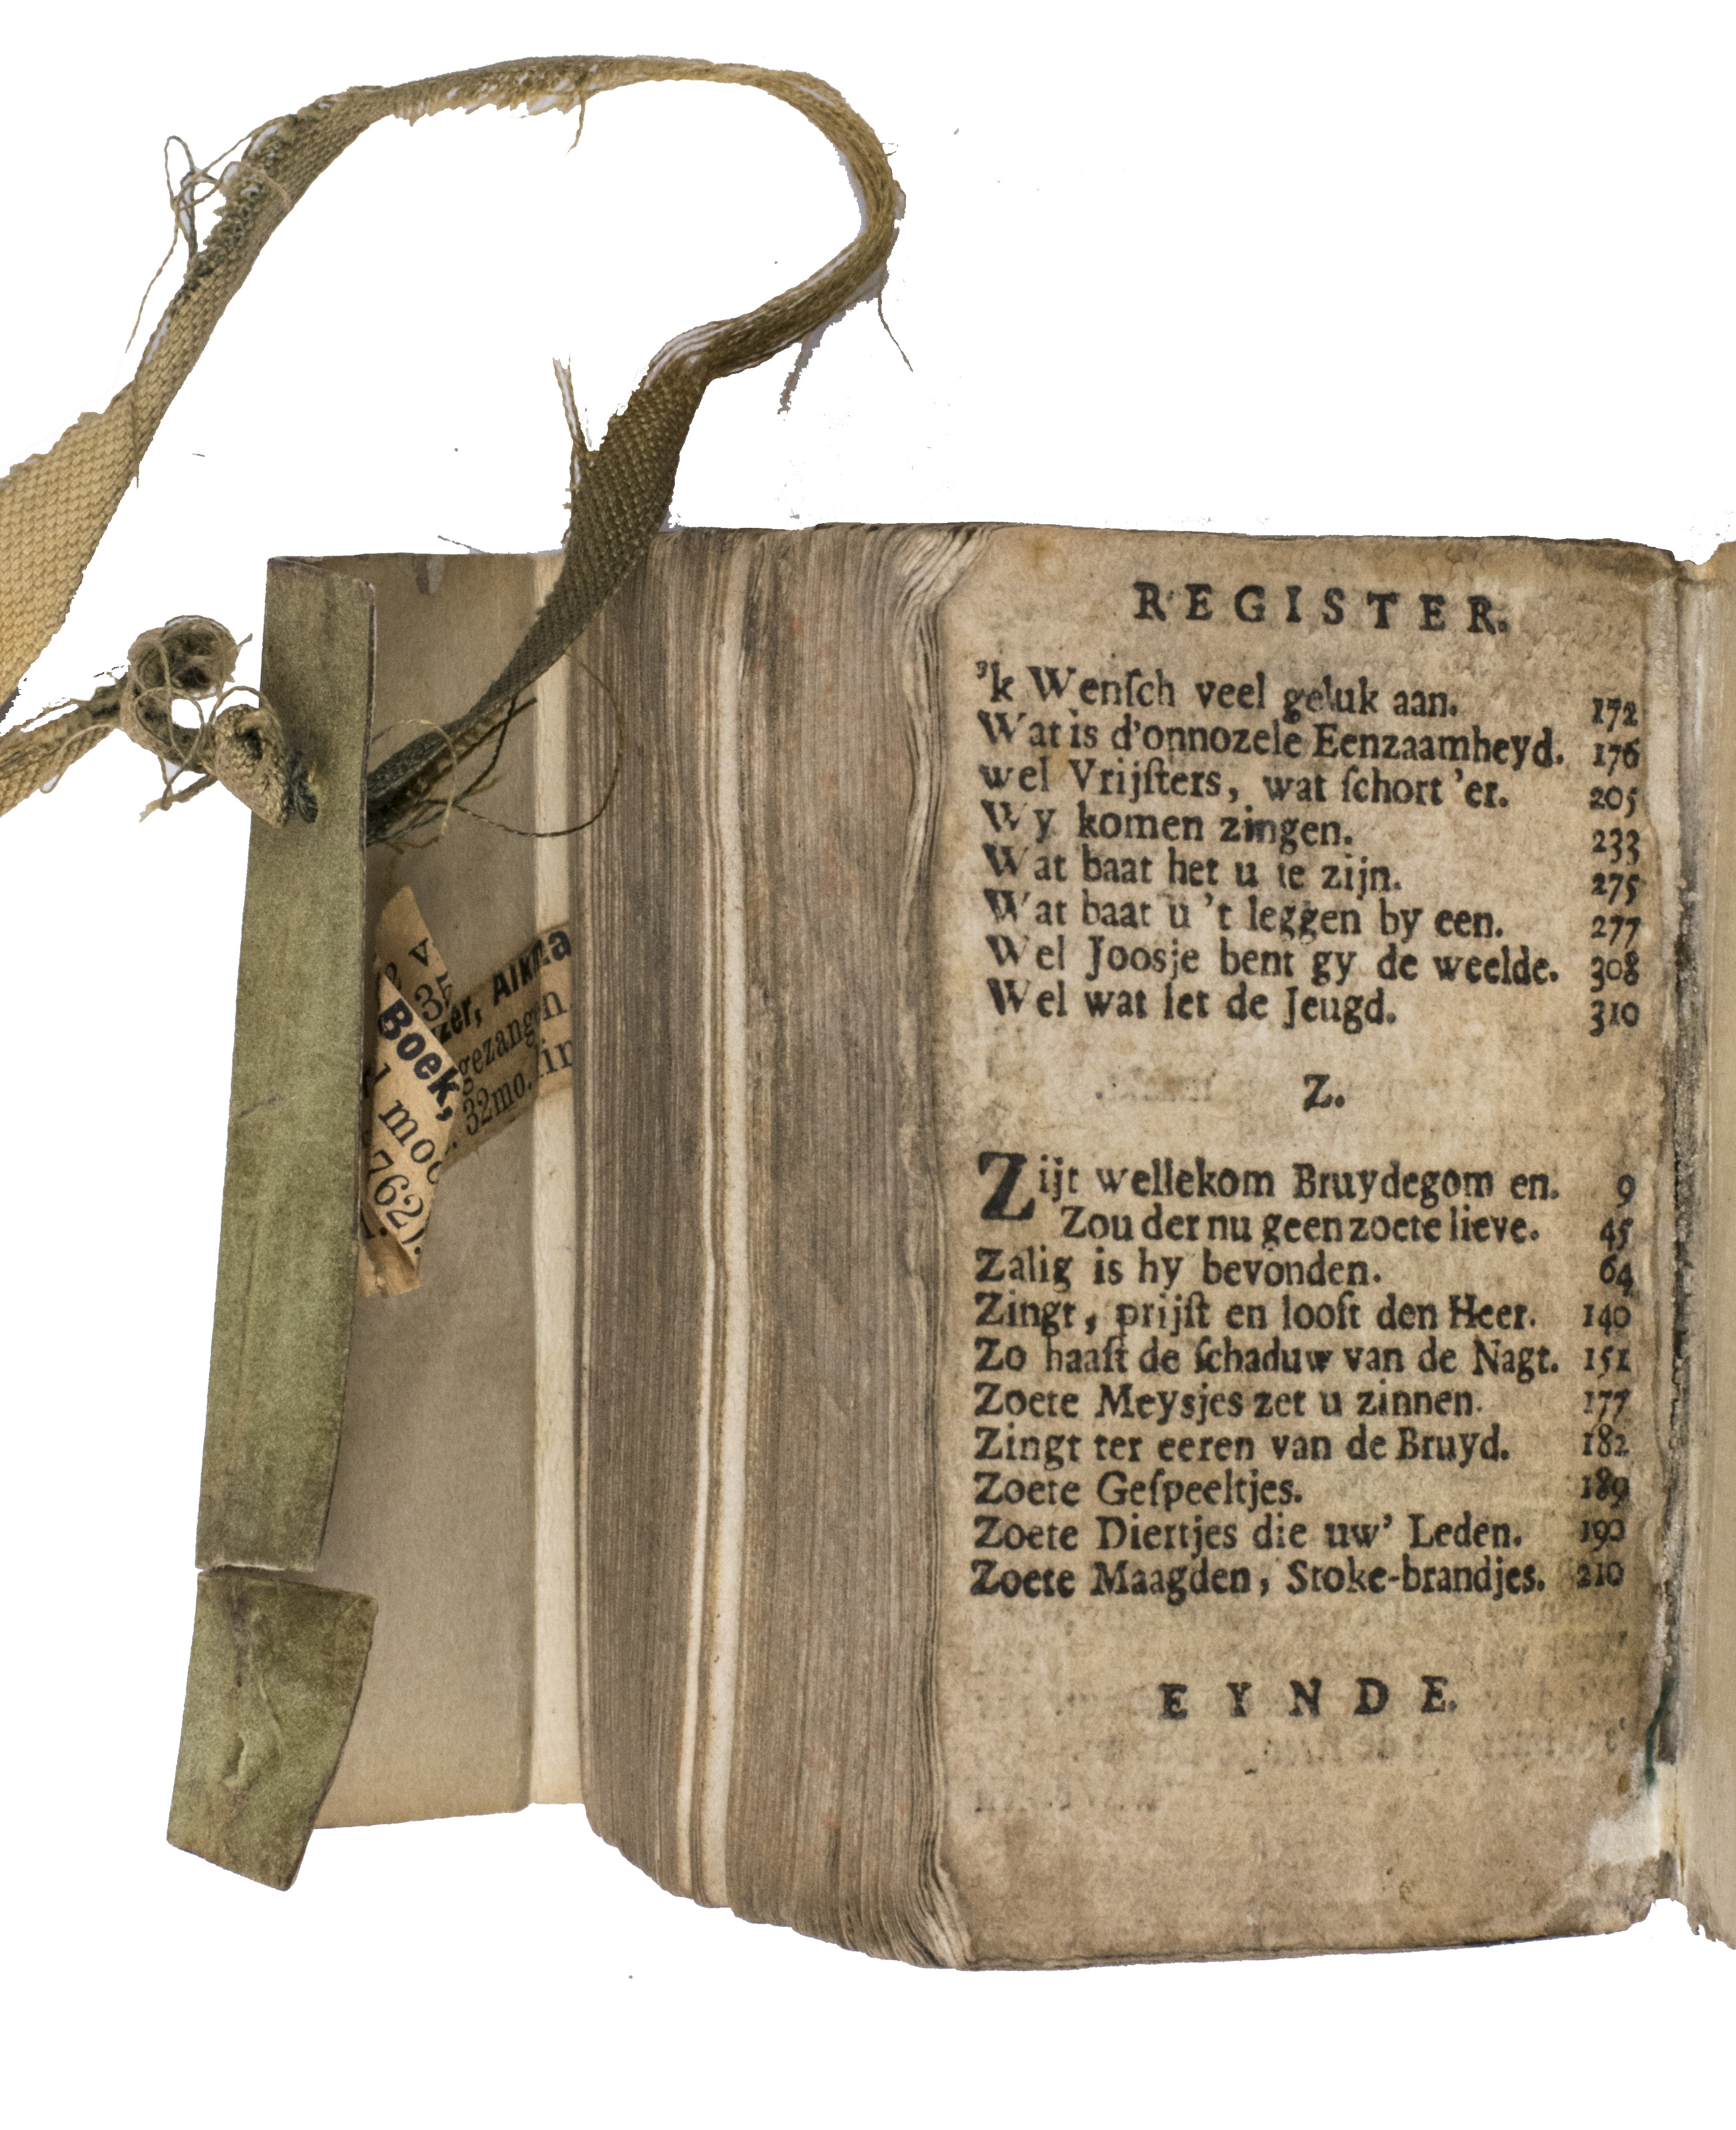 REGISTER.
'k Wenſch veel geluk aan. 172
Wat is d'onnozele Eenzaamheyd. 176
wel Vrijſters, wat ſchort 'er. 205
Wy komen zingen. 233
Wat baat het u te zijn. 275
Wat baat u 't leggen by een. 277
Wel Joosje bent gy de weelde. 308
Wel wat let de Jeugd. 310
Z.
Zijt wellekom Bruydegom en. 9
Zou der nu geen zoete lieve. 45
Zalig is hy bevonden. 64
Zingt, prijſt en looft den Heer. 140
Zo haaſt de ſchaduw van de Nagt. 151
Zoete Meysjes zet u zinnen. 177
Zingt ter eeren van de Bruyd. 182
Zoete Geſpeeltjes. 189
Zoete Diertjes die uw' Leden. 190
Zoete Maagden, Stoke-brandjes. 210
EYNDE.
35
Boek,
moo
762).
zer, Alkma
gezangen
32mo. lin